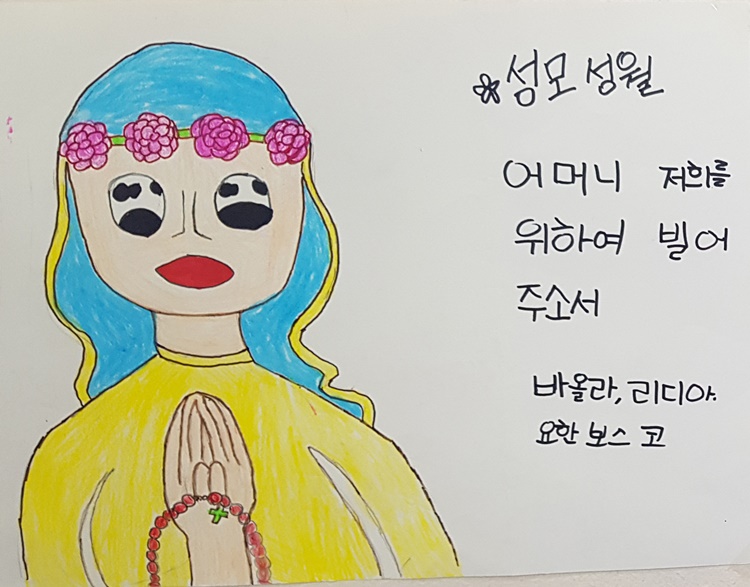 성모 성월
어머니 저희를
위하여 빌어
주소서
바올라, 리디아.
요한 보스 코